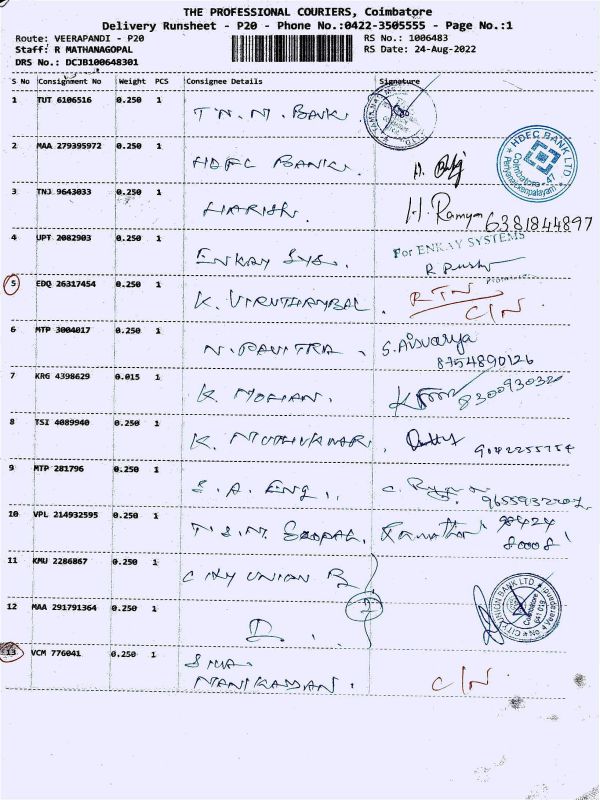 THE PROFESSIONAL COURIERS, Coimbatore
Delivery Runsheet - P20 - Phone No.:0422-3505555 - Page No.:1
Route: VEERAPANDI - P20 RS No.: 1006483
Staff: R MATHANAGOPAL RS Date: 24-Aug-2022
DRS No.: DCJB100648301
S No Consignment No Weight PCS Consignee Details Signature
1 TUT 6106516 0.250 1 T.N.M. BANK
2 MAA 279395972 0.250 1 HDFC BANK. H.
HDFC BANK LTD.
Coimbatore - 47
Periyanaickenpalayam
3 TNJ 9643033 0.250 1 HARISH. H. Ramya 6381844897
4 UPT 2082903 0.250 1 ENKAY SYS. For ENKAY SYSTEMS
5 EDQ 26317454 0.250 1 K. VIRUTHAMBAL. RTN
C/N
6 MTP 3004017 0.250 1 N. PAVITRA. S. Aisvarya
8754890126
7 KRG 4398629 0.015 1 K. MOHAN. 8300930320
8 TSI 4089940 0.250 1 K. MUTHUKUMAR.
9 MTP 281796 0.250 1 S.A. ENG.,
10 VPL 214932595 0.250 1 T.S.M. GOPAL. 98424
80008
11 KMU 2286867 0.250 1 CITY UNION B
12 MAA 291791364 0.250 1 D.
CITY UNION BANK LTD.
Coimbatore
641 019
13 VCM 776041 0.250 1 SIVA
MANIKANDAN. C/N